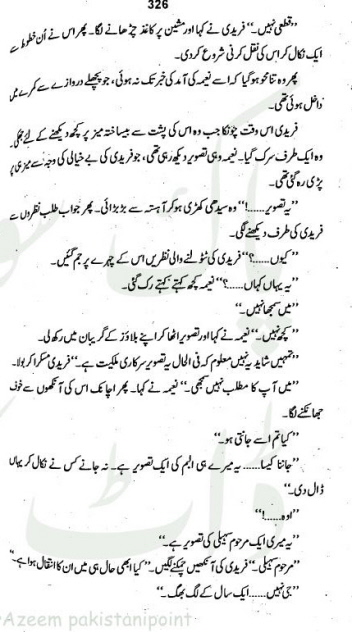 326
”قطعی نہیں۔“ فریدی نے کہا اور مشین پر کاغذ چڑھانے لگا۔ پھر اس نے اُن خطوط سے
ایک نکال کر اس کی نقل کرنی شروع کردی۔
پھر وہ اتنا محو ہو گیا کہ اسے نعیمہ کی آمد کی خبر تک نہ ہوئی، جو پچھلے دروازے سے کمرے میں
داخل ہوئی تھی۔
فریدی اس وقت چونکا جب وہ اس کی پشت سے بیساختہ میز پر کچھ دیکھنے کے لئے جھکی۔
وہ ایک طرف سرک گیا۔ نعیمہ وہی تصویر دیکھ رہی تھی، جو فریدی کی بے خیالی کی وجہ سے میز ہی پر
پڑی رہ گئی تھی۔
”یہ تصویر......!“ وہ سیدھی کھڑی ہوکر آہستہ سے بڑبڑائی۔ پھر جواب طلب نظروں سے
فریدی کی طرف دیکھنے لگی۔
”کیوں......؟“ فریدی کی ٹٹولنے والی نظریں اس کے چہرے پر جم گئیں۔
”یہ یہاں کہاں......؟“ نعیمہ کچھ کہتے کہتے رک گئی۔
”میں سمجھا نہیں۔“
”کچھ نہیں۔“ نعیمہ نے کہا اور تصویر اٹھا کر اپنے بلاؤز کے گریبان میں رکھ لی۔
”تمہیں شاید یہ نہیں معلوم کہ فی الحال یہ تصویر سرکاری ملکیت ہے۔“ فریدی مسکرا کر بولا۔
”میں آپ کا مطلب نہیں سمجھی۔“ نعیمہ نے کہا۔ پھر اچانک اس کی آنکھوں سے خوف
جھانکنے لگا۔
”کیا تم اسے جانتی ہو۔“
”جاننا کیسا...... یہ میرے ہی البم کی ایک تصویر ہے۔ نہ جانے کس نے نکال کر یہاں
ڈال دی۔“
”اوہ......!“
”یہ میری ایک مرحوم سہیلی کی تصویر ہے۔“
”مرحوم سہیلی۔“ فریدی کی آنکھیں چمکنے لگیں۔ ”کیا ابھی حال ہی میں ان کا انتقال ہوا ہے۔“
”جی نہیں......ایک سال کے لگ بھگ۔“
Azeem pakistanipoint